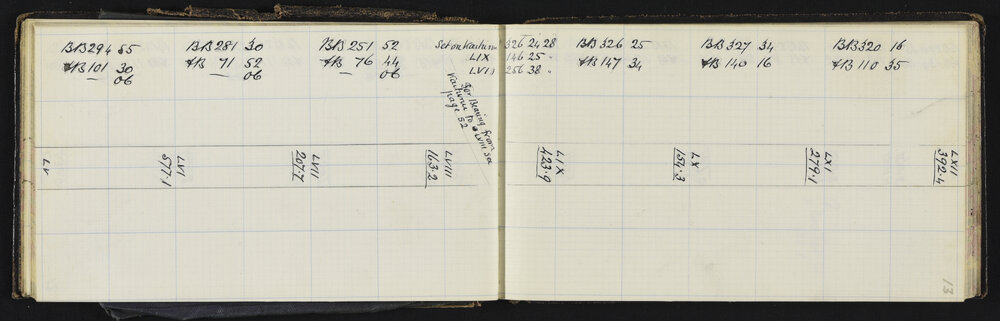 BB 294 55
FB 101 30
— 06
BB 281 30
FB 71 52
— 06
BB 251 52
FB 76 44
— 06
Set on Waituna 326 24 28
LIX 146 25 "
LVII 256 38 "
for Bearing from
Waituna to LVIII see
page 52
BB 326 25
FB 147 34
BB 327 34
FB 140 16
BB 320 16
FB 110 35
LV
LVI
577.1
LVII
207.7
LVIII
163.2
LIX
423.9
LX
154.3
LXI
279.1
LXII
392.4
13